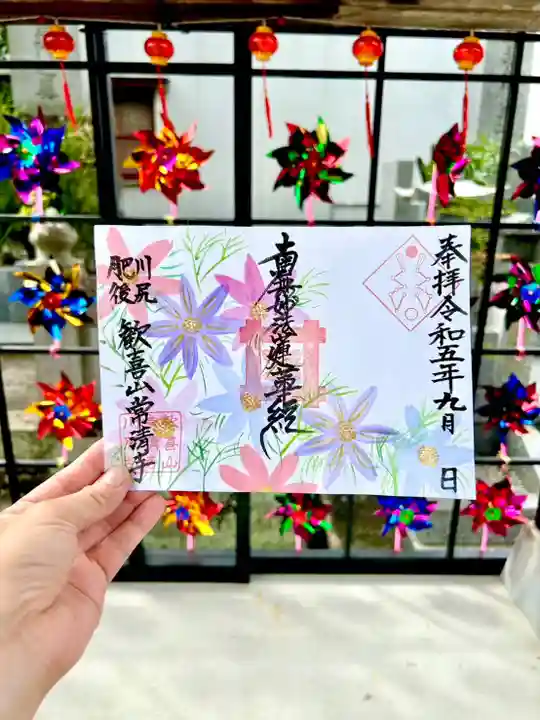 奉拝令和五年九月 日
南無妙法蓮華経
川尻
肥後
歓喜山常清寺